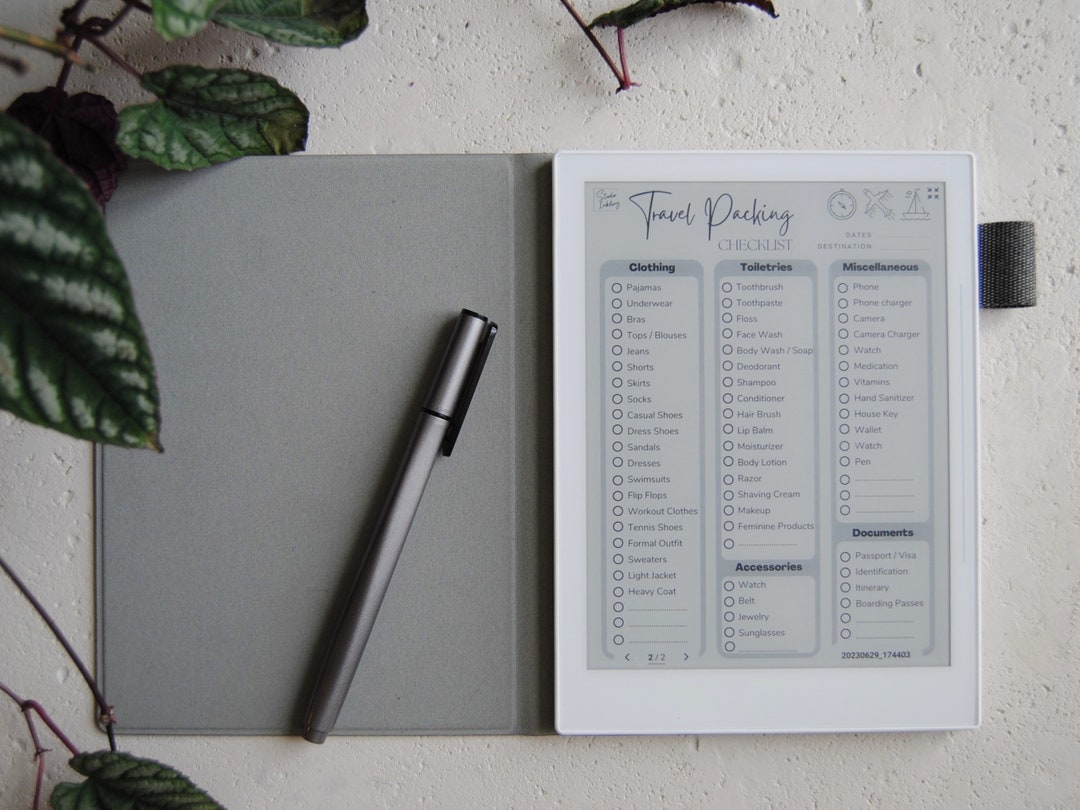 Travel Packing
CHECKLIST
DATES
DESTINATION
Clothing
Pajamas
Underwear
Bras
Tops / Blouses
Jeans
Shorts
Skirts
Socks
Casual Shoes
Dress Shoes
Sandals
Dresses
Swimsuits
Flip Flops
Workout Clothes
Tennis Shoes
Formal Outfit
Sweaters
Light Jacket
Heavy Coat
Toiletries
Toothbrush
Toothpaste
Floss
Face Wash
Body Wash / Soap
Deodorant
Shampoo
Conditioner
Hair Brush
Lip Balm
Moisturizer
Body Lotion
Razor
Shaving Cream
Makeup
Feminine Products
Accessories
Watch
Belt
Jewelry
Sunglasses
Miscellaneous
Phone
Phone charger
Camera
Camera Charger
Watch
Medication
Vitamins
Hand Sanitizer
House Key
Wallet
Watch
Pen
Documents
Passport / Visa
Identification
Itinerary
Boarding Passes
< 2 / 2 >
20230629_174403